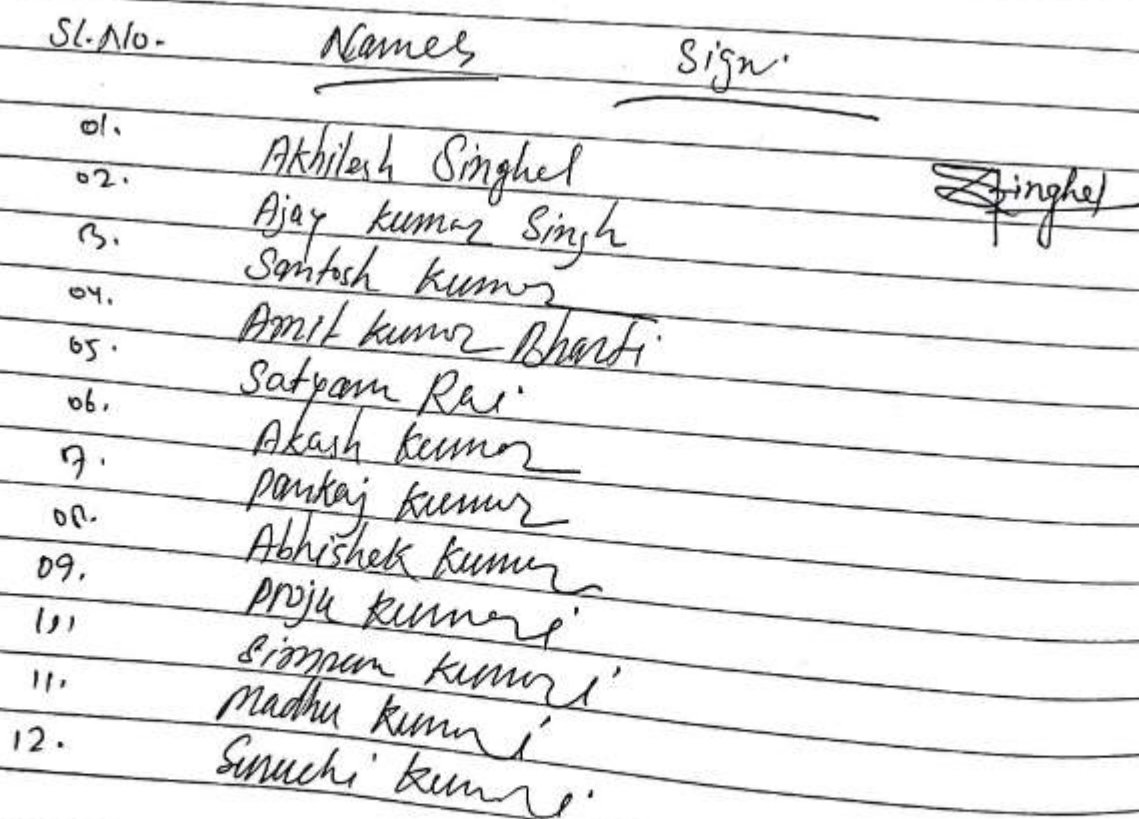 Sl.No. Names Sign.
01. Akhilesh Singhel Singhel
02. Ajay Kumar Singh
03. Santosh Kumar
04. Amit Kumar Bharti
05. Satyam Rai
06. Akash Kumar
07. Pankaj Kumar
08. Abhishek Kumar
09. Kumari
10. Kumari
11. Madhu Kumari
12. Suruchi Kumari